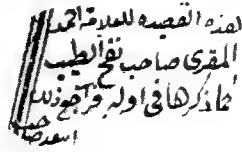 هذه القصيده للعلامة احمد
المقري صاحب نفح الطيب
كما ذكرها في اوله فرجع ذلك